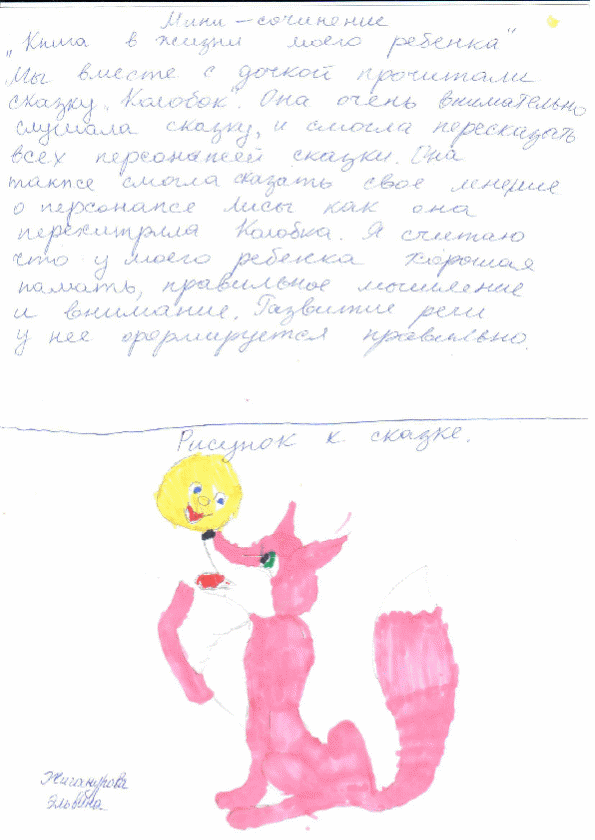 Мини-сочинение
"Книга в жизни моего ребенка"
Мы вместе с дочкой прочитали
сказку "Колобок". Она очень внимательно
слушала сказку, и смогла пересказать
всех персонажей сказки. Она
также смогла сказать свое мнение
о персонаже Лисы как она
перехитрила Колобка. Я считаю
что у моего ребенка хорошая
память, правильное мышление
и внимание. Развитие речи
у нее формируется правильно.
Рисунок к сказке.
Жиганурова
Эльвина